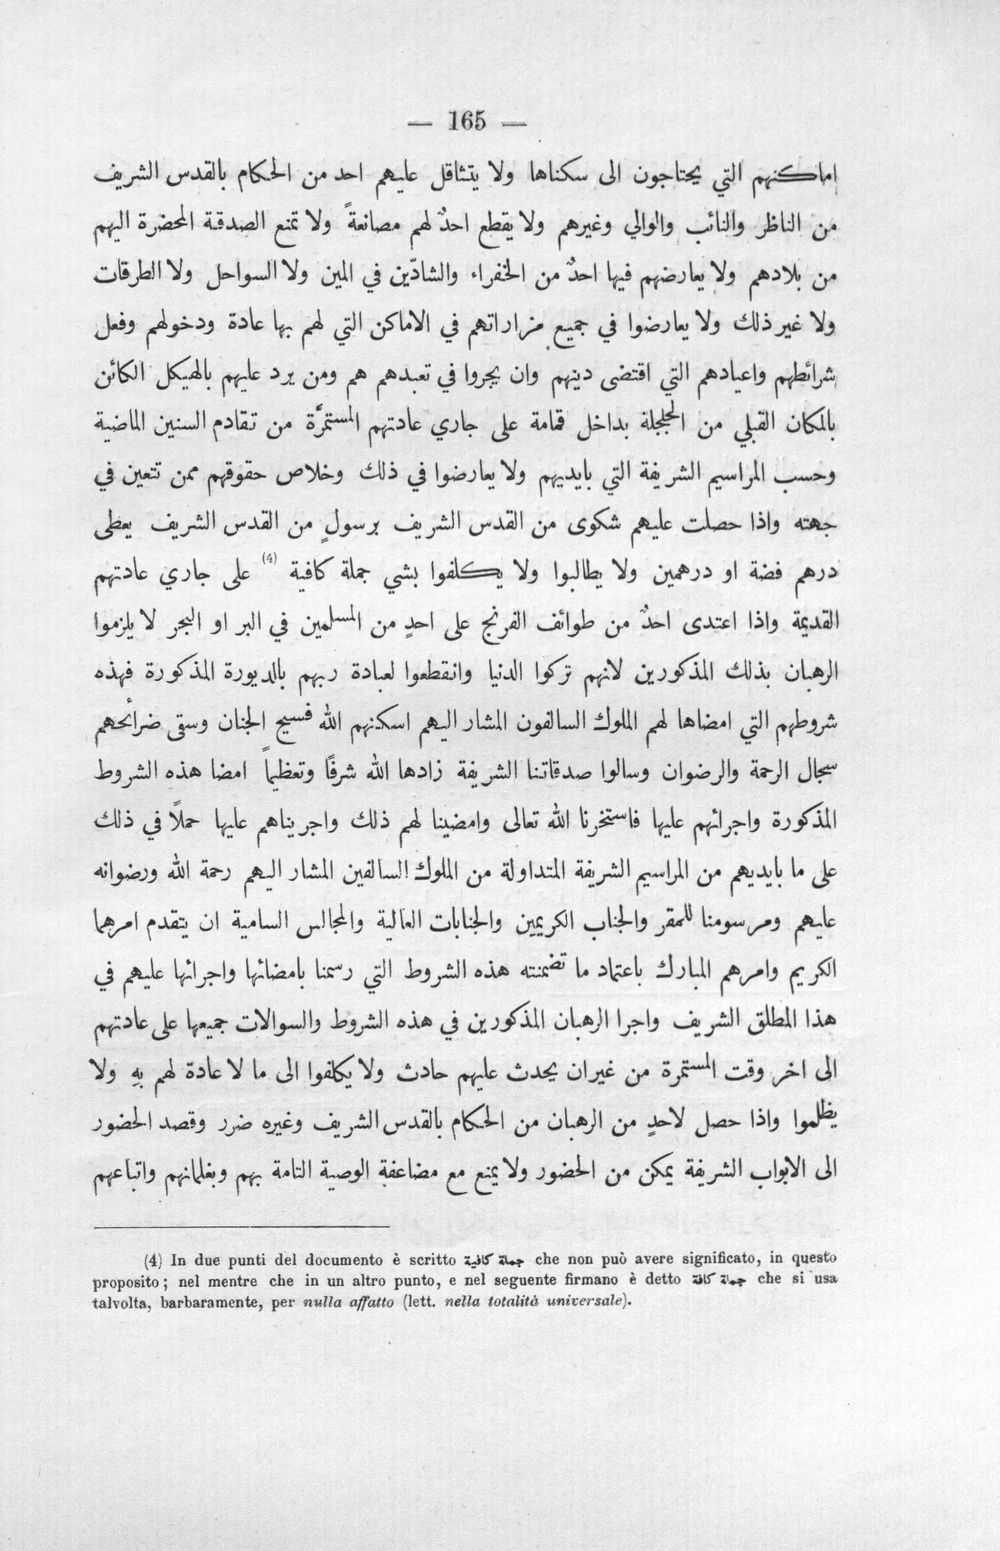 — 165 —
اماكنهم التي يحتاجون الى سكناها ولا يتثاقل عليهم احد من الحكام بالقدس الشريف
من الناظر والنائب والوالي وغيرهم ولا يقطع احدٌ لهم مصانعةً ولا تمنع الصدقة المحضرة اليهم
من بلادهم ولا يعارضهم فيها احدٌ من الخفراء والشادّين في المين ولا السواحل ولا الطرقات
ولا غير ذلك ولا يعارضوا في جميع مزاراتهم في الاماكن التي لهم بها عادة ودخولهم وفعل
شرائطهم واعيادهم التي اقتضى دينهم وان يجروا في تعبدهم هم ومن يرد عليهم بالهيكل الكائن
بالمكان القبلي من الجلجلة بداخل قمامة على جاري عادتهم المستمرَّة من تقادم السنين الماضية
وحسب المراسيم الشريفة التي بايديهم ولا يعارضوا في ذلك وخلاص حقوقهم ممن تتعين في
جهته واذا حصلت عليهم شكوى من القدس الشريف برسولٍ من القدس الشريف يعطى
درهم فضة او درهمين ولا يطالبوا ولا يكلفوا بشي جملة كافية (4) على جاري عادتهم
القديمة واذا اعتدى احدٌ من طوائف الفرنج على احدٍ من المسلمين في البر او البحر لا يلزموا
الرهبان بذلك المذكورين لانهم تركوا الدنيا وانقطعوا لعبادة ربهم بالديورة المذكورة فهذه
شروطهم التي امضاها لهم الملوك السالفون المشار اليهم اسكنهم الله فسيح الجنان وسقى ضرائحهم
سجال الرحمة والرضوان وسالوا صدقاتنا الشريفة زادها الله شرفًا وتعظيماً امضا هذه الشروط
المذكورة واجرائهم عليها فاستخرنا الله تعالى وامضينا لهم ذلك واجريناهم عليها حملًا في ذلك
على ما بايديهم من المراسيم الشريفة المتداولة من الملوك السالفين المشار اليهم رحمة الله ورضوانه
عليهم ومرسومنا للمقر والجناب الكريمين والجنابات العالية والمجالس السامية ان يتقدم امرهما
الكريم وامرهم المبارك باعتماد ما تضمنته هذه الشروط التي رسمنا بامضائها واجرائها عليهم في
هذا المطلق الشريف واجرا الرهبان المذكورين في هذه الشروط والسوالات جميعها على عادتهم
الى اخر وقت المستمرة من غيران يحدث عليهم حادث ولا يكلفوا الى ما لا عادة لهم بهِ ولا
يظلموا واذا حصل لاحدٍ من الرهبان من الحكام بالقدس الشريف وغيره ضرر وقصد الحضور
الى الابواب الشريفة يمكن من الحضور ولا يمنع مع مضاعفة الوصية التامة بهم وبغلمانهم واتباعهم
(4) In due punti del documento è scritto جملة كافية che non può avere significato, in questo
proposito; nel mentre che in un altro punto, e nel seguente firmano è detto جملة كافة che si usa
talvolta, barbaramente, per nulla affatto (lett. nella totalità universale).